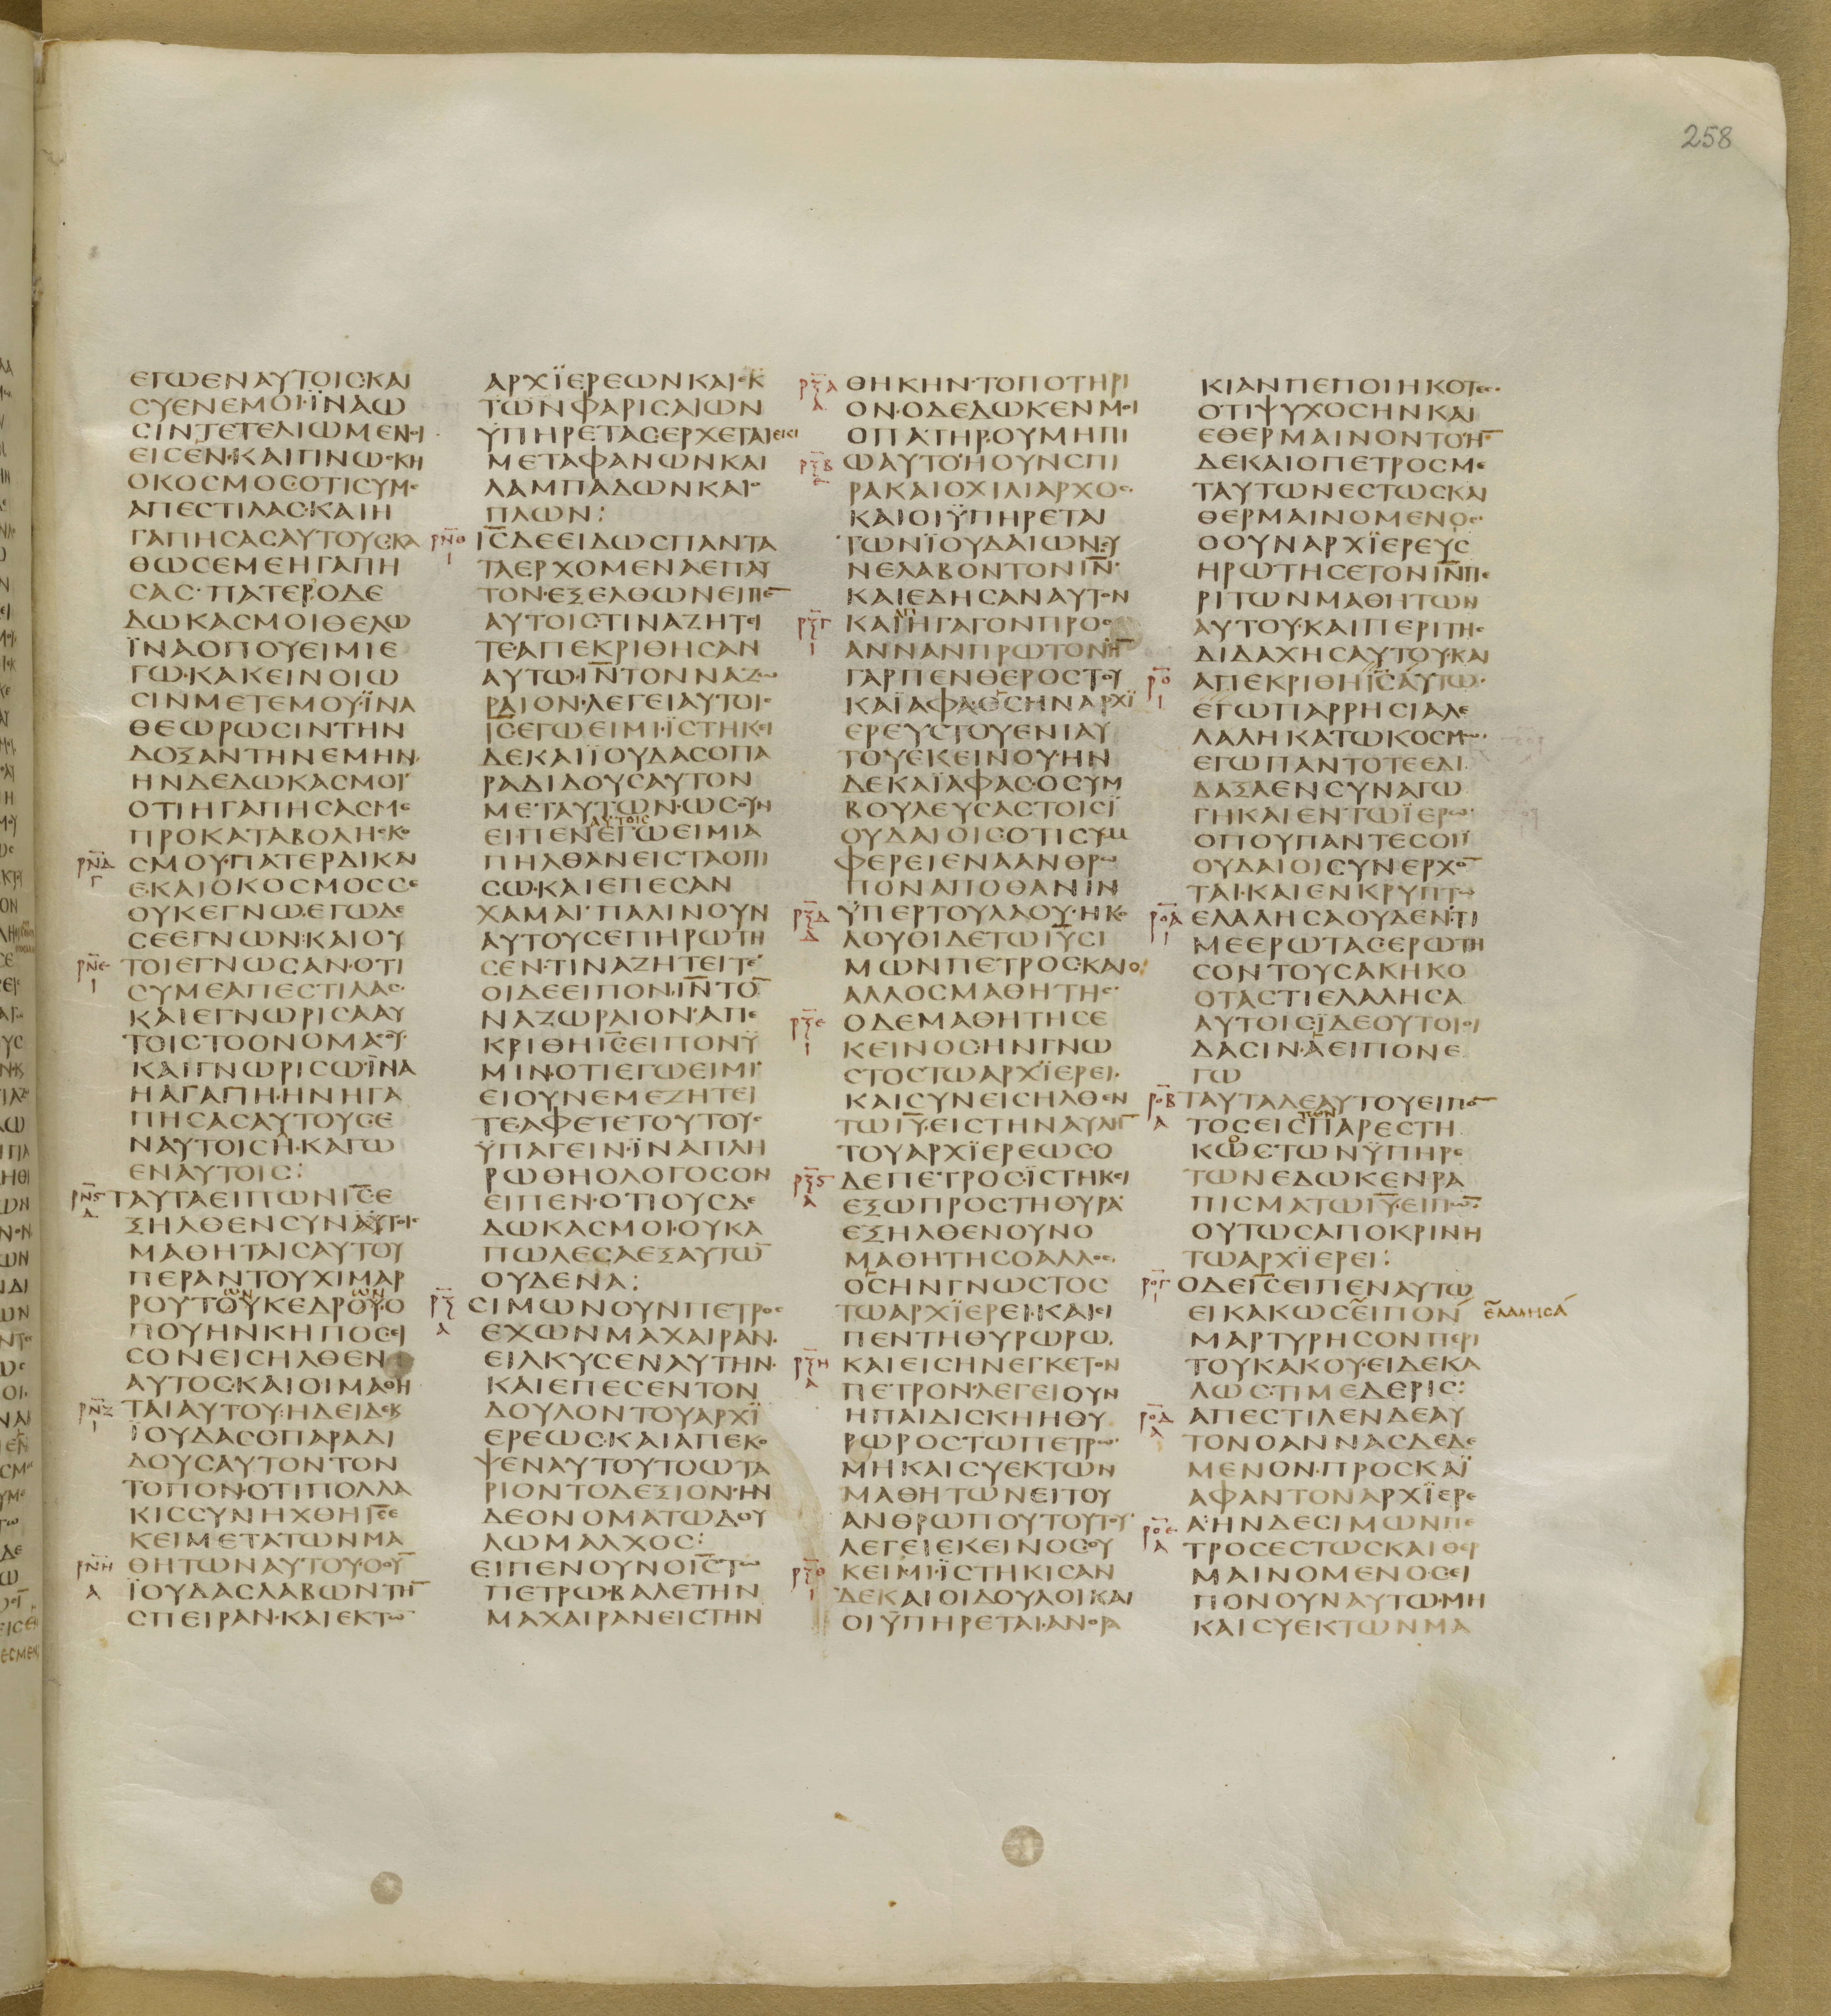 258
ΕΓΩΕΝΑΥΤΟΙΣ·ΚΑΙ
ΣΥΕΝΕΜΟΙ·ΪΝΑΩ
ΣΙΝΤΕΤΕΛΙΩΜΕΝΟΙ
ΕΙΣΕΝ·ΚΑΙΓΙΝΩΣΚΗ
ΟΚΟΣΜΟΣΟΤΙΣΥΜΕ
ΑΠΕΣΤΙΛΑΣ·ΚΑΙΗ
ΓΑΠΗΣΑΣΑΥΤΟΥΣ·ΚΑ
ΘΩΣΕΜΕΗΓΑΠΗ
ΣΑΣ·ΠΑΤΕΡ·ΟΔΕ
ΔΩΚΑΣΜΟΙΘΕΛΩ
ΪΝΑΟΠΟΥΕΙΜΙΕ
ΓΩ·ΚΑΚΕΙΝΟΙΩ
ΣΙΝΜΕΤΕΜΟΥ·ΪΝΑ
ΘΕΩΡΩΣΙΝΤΗΝ
ΔΟΞΑΝΤΗΝΕΜΗΝ·
ΗΝΔΕΔΩΚΑΣΜΟΙ·
ΟΤΙΗΓΑΠΗΣΑΣΜΕ
ΠΡΟΚΑΤΑΒΟΛΗΣΚΟ
ρνδ ΣΜΟΥ·ΠΑΤΕΡΔΙΚΑΙ
γ Ε·ΚΑΙΟΚΟΣΜΟΣΣΕ
ΟΥΚΕΓΝΩ·ΕΓΩΔΕ
ΣΕΕΓΝΩΝ·ΚΑΙΟΥ
ρνε ΤΟΙΕΓΝΩΣΑΝ·ΟΤΙ
ι ΣΥΜΕΑΠΕΣΤΙΛΑΣ·
ΚΑΙΕΓΝΩΡΙΣΑΑΥ
ΤΟΙΣΤΟΟΝΟΜΑΣΟΥ·
ΚΑΙΓΝΩΡΙΣΩ·ΪΝΑ
ΗΑΓΑΠΗ·ΗΝΗΓΑ
ΠΗΣΑΣΑΥΤΟΥΣ·Ε
ΝΑΥΤΟΙΣΗ·ΚΑΓΩ
ΕΝΑΥΤΟΙΣ:
ρνϛ ΤΑΥΤΑΕΙΠΩΝΙ̅Σ̅Ε
α ΞΗΛΘΕΝΣΥΝΑΥΤΟΙΣ
ΜΑΘΗΤΑΙΣΑΥΤΟΥ
ΠΕΡΑΝΤΟΥΧΙΜΑΡ
ΡΟΥΤΟΥΚΕΔΡΟΥ·Ο
ΠΟΥΗΝΚΗΠΟΣ·ΕΙ
ΣΟΝΕΙΣΗΛΘΕΝ
ΑΥΤΟΣ·ΚΑΙΟΙΜΑΘΗ
ρνζ ΤΑΙΑΥΤΟΥ·ΗΔΕΙΔΕΚ
ι ΪΟΥΔΑΣΟΠΑΡΑΔΙ
ΔΟΥΣΑΥΤΟΝΤΟΝ
ΤΟΠΟΝ·ΟΤΙΠΟΛΛΑ
ΚΙΣΣΥΝΗΧΘΗΙ̅Σ̅Ε
ΚΕΙΜΕΤΑΤΩΝΜΑ
ρνη ΘΗΤΩΝΑΥΤΟΥ·ΟΟΥ̅
α ΪΟΥΔΑΣΛΑΒΩΝΤΗ̅
ΣΠΕΙΡΑΝ·ΚΑΙΕΚΤΩ̅
ΑΡΧΪΕΡΕΩΝΚΑΙΕΚ
ΤΩΝΦΑΡΙΣΑΙΩΝ
ΫΠΗΡΕΤΑΣ·ΕΡΧΕΤΑΙΕΚΕΙ
ΜΕΤΑΦΑΝΩΝΚΑΙ
ΛΑΜΠΑΔΩΝΚΑΙΟ
ΠΛΩΝ:
ρνθ Ι̅Σ̅ΔΕΕΙΔΩΣΠΑΝΤΑ
ι ΤΑΕΡΧΟΜΕΝΑΕΠΑΥ
ΤΟΝ·ΕΞΕΛΘΩΝΕΙΠΕ̅
ΑΥΤΟΙΣΤΙΝΑΖΗΤΕΙ
ΤΕ·ΑΠΕΚΡΙΘΗΣΑΝ
ΑΥΤΩ·Ι̅Ν̅ΤΟΝΝΑΖΩ
ΡΑΙΟΝ·ΛΕΓΕΙΑΥΤΟΙΣ
Ι̅Σ̅ΕΓΩΕΙΜΙ·ΪΣΤΗΚΕΙ
ΔΕΚΑΙΪΟΥΔΑΣΟΠΑ
ΡΑΔΙΔΟΥΣΑΥΤΟΝ
ΜΕΤΑΥΤΩΝ·ΩΣΟΥΝ
ΑΥΤΟΙΣ
ΕΙΠΕΝΕΓΩΕΙΜΙΑ
ΠΗΛΘΑΝΕΙΣΤΑΟΠΙ
ΣΩ·ΚΑΙΕΠΕΣΑΝ
ΧΑΜΑΙ·ΠΑΛΙΝΟΥΝ
ΑΥΤΟΥΣΕΠΗΡΩΤΗ
ΣΕΝ·ΤΙΝΑΖΗΤΕΙΤΕ·
ΟΙΔΕΕΙΠΟΝ·Ι̅Ν̅ΤΟ̅
ΝΑΖΩΡΑΙΟΝ·ΑΠΕ
ΚΡΙΘΗΙ̅Σ̅·ΕΙΠΟΝΫ
ΜΙΝ·ΟΤΙΕΓΩΕΙΜΙ·
ΕΙΟΥΝΕΜΕΖΗΤΕΙ
ΤΕΑΦΕΤΕΤΟΥΤΟΥΣ
ΫΠΑΓΕΙΝ·ΪΝΑΠΛΗ
ΡΩΘΗΟΛΟΓΟΣΟΝ
ΕΙΠΕΝ·ΟΤΙΟΥΣΔΕ
ΔΩΚΑΣΜΟΙ·ΟΥΚΑ
ΠΩΛΕΣΑΕΞΑΥΤΩ̅
ΟΥΔΕΝΑ:
ρξ ΣΙΜΩΝΟΥΝΠΕΤΡΟΣ
α ΕΧΩΝΜΑΧΑΙΡΑΝ·
ΕΙΛΚΥΣΕΝΑΥΤΗΝ·
ΚΑΙΕΠΕΣΕΝΤΟΝ
ΔΟΥΛΟΝΤΟΥΑΡΧΪ
ΕΡΕΩΣ·ΚΑΙΑΠΕΚΟ
ΨΕΝΑΥΤΟΥΤΟΩΤΑ
ΡΙΟΝΤΟΔΕΞΙΟΝ·ΗΝ
ΔΕΟΝΟΜΑΤΩΔΟΥ
ΛΩΜΑΛΧΟΣ:
ΕΙΠΕΝΟΥΝΟΙ̅Σ̅ΤΩ
ΠΕΤΡΩ·ΒΑΛΕΤΗΝ
ΜΑΧΑΙΡΑΝΕΙΣΤΗΝ
ρξα ΘΗΚΗΝ·ΤΟΠΟΤΗΡΙ
α ΟΝ·ΟΔΕΔΩΚΕΝΜΟΙ
ΟΠΑΤΗΡ·ΟΥΜΗΠΙ
ρξβ ΩΑΥΤΟ·ΗΟΥΝΣΠΙ
ΡΑΚΑΙΟΧΙΛΙΑΡΧΟΣ·
ΚΑΙΟΙΫΠΗΡΕΤΑΙ
ΤΩΝΪΟΥΔΑΙΩΝ·ΣΥ
ΝΕΛΑΒΟΝΤΟΝΙ̅Ν̅·
ΚΑΙΕΔΗΣΑΝΑΥΤΟΝ
ΑΠ
ρξγ ΚΑΙΗΓΑΓΟΝΠΡΟΣ
ι ΑΝΝΑΝΠΡΩΤΟΝΗ̅
ΓΑΡΠΕΝΘΕΡΟΣΤΟΥ
ΚΑΪΑΦΑ·ΟΣΗΝΑΡΧΪ
ΕΡΕΥΣΤΟΥΕΝΙΑΥ
ΤΟΥΕΚΕΙΝΟΥ·ΗΝ
ΔΕΚΑΪΑΦΑΣ·ΟΣΥΜ
ΒΟΥΛΕΥΣΑΣΤΟΙΣΪ
ΟΥΔΑΙΟΙΣ·ΟΤΙΣΥΜ
ΦΕΡΕΙΕΝΑΑΝΘΡΩ
ΠΟΝΑΠΟΘΑΝΙΝ
ρξδ ΫΠΕΡΤΟΥΛΑΟΥ·ΗΚΟ
δ ΛΟΥΘΙΔΕΤΩΙ̅Υ̅ΣΙ
ΜΩΝΠΕΤΡΟΣ·ΚΑΙΟ
ΑΛΛΟΣΜΑΘΗΤΗΣ·
ρξε ΟΔΕΜΑΘΗΤΗΣΕ
ι ΚΕΙΝΟΣ·ΗΝΓΝΩ
ΣΤΟΣΤΩΑΡΧΪΕΡΕΙ·
ΚΑΙΣΥΝΕΙΣΗΛΘΕΝ
ΤΩΙ̅Υ̅·ΕΙΣΤΗΝΑΥΛΗ̅
ΤΟΥΑΡΧΪΕΡΕΩΣΟ
ρξϛ ΔΕΠΕΤΡΟΣ·ΪΣΤΗΚΕΙ
α ΕΞΩΠΡΟΣΤΗΘΥΡΑ·
ΕΞΗΛΘΕΝΟΥΝΟ
ΜΑΘΗΤΗΣΟΑΛΛΟΣ
ΟΣΗΝΓΝΩΣΤΟΣ
ΤΩΑΡΧΪΕΡΕΙ·ΚΑΙΕΙ
ΠΕΝΤΗΘΥΡΩΡΩ·
ρξη ΚΑΙΕΙΣΗΝΕΓΚΕΤΟΝ
α ΠΕΤΡΟΝ·ΛΕΓΕΙΟΥΝ
ΗΠΑΙΔΙΣΚΗΗΘΥ
ΡΩΡΟΣΤΩΠΕΤΡΩ·
ΜΗΚΑΙΣΥΕΚΤΩΝ
ΜΑΘΗΤΩΝΕΙΤΟΥ
ΑΝΘΡΩΠΟΥΤΟΥΤΟΥ·
ΛΕΓΕΙΕΚΕΙΝΟΣ·ΟΥ
ρξθ ΚΕΙΜΙ·ΪΣΤΗΚΙΣΑΝ
ι ΔΕΚΑΙΟΙΔΟΥΛΟΙΚΑΙ
ΟΙΫΠΗΡΕΤΑΙ·ΑΝΘΡΑ
ΚΙΑΝΠΕΠΟΙΗΚΟΤΕΣ·
ΟΤΙΨΥΧΟΣΗΝΚΑΙ
ΕΘΕΡΜΑΙΝΟΝΤΟ·Η̅
ΔΕΚΑΙΟΠΕΤΡΟΣΜΕ
ΤΑΥΤΩΝΕΣΤΩΣΚΑΙ
ΘΕΡΜΑΙΝΟΜΕΝΟΣ·
ΟΟΥΝΑΡΧΪΕΡΕΥΣ
ΗΡΩΤΗΣΕΤΟΝΙ̅Ν̅ΠΕ
ΡΙΤΩΝΜΑΘΗΤΩΝ
ΑΥΤΟΥ·ΚΑΙΠΕΡΙΤΗΣ
ΔΙΔΑΧΗΣΑΥΤΟΥ·ΚΑΙ
ρο ΑΠΕΚΡΙΘΗΙ̅Σ̅ΑΥΤΩ·
ι ΕΓΩΠΑΡΡΗΣΙΑΛΕ
ΛΑΛΗΚΑΤΩΚΟΣΜΩ·
ΕΓΩΠΑΝΤΟΤΕΕΔΙ
ΔΑΞΑΕΝΣΥΝΑΓΩ
ΓΗΚΑΙΕΝΤΩΪΕΡΩ·
ΟΠΟΥΠΑΝΤΕΣΟΙΪ
ΟΥΔΑΙΟΙΣΥΝΕΡΧΟ̅
ΤΑΙ·ΚΑΙΕΝΚΡΥΠΤΩ
ροα ΕΛΑΛΗΣΑΟΥΔΕΝ·ΤΙ
ι ΜΕΕΡΩΤΑΣ·ΕΡΩΤΗ
ΣΟΝΤΟΥΣΑΚΗΚΟ
ΟΤΑΣΤΙΕΛΑΛΗΣΑ
ΑΥΤΟΙΣ·ΪΔΕΟΥΤΟΙΟΙ
ΔΑΣΙΝ·ΑΕΙΠΟΝΕ
ΓΩ
ροβ ΤΑΥΤΑΔΕΑΥΤΟΥΕΙΠΟ̅
ΤΩΝ
α ΤΟΣΕΙΣΠΑΡΕΣΤΗ
ΚΩΣΤΩΝΫΠΗΡΕ
ΤΩΝΕΔΩΚΕΝΡΑ
ΠΙΣΜΑΤΩΙ̅Υ̅·ΕΙΠΩ̅·
ΟΥΤΩΣΑΠΟΚΡΙΝΗ
ΤΩΑΡΧΪΕΡΕΙ:
ρογ ΟΔΕΙ̅Σ̅ΕΙΠΕΝΑΥΤΩ
ι ΕΙΚΑΚΩΣΕΙΠΟΝ ΕΛΑΛΗΣΑ
ΜΑΡΤΥΡΗΣΟΝΠΕΡΙ
ΤΟΥΚΑΚΟΥ·ΕΙΔΕΚΑ
ΛΩΣ·ΤΙΜΕΔΕΡΙΣ:
ροδ ΑΠΕΣΤΙΛΕΝΔΕΑΥ
α ΤΟΝΟΑΝΝΑΣΔΕΔΕ
ΜΕΝΟΝ·ΠΡΟΣΚΑΪ
ΑΦΑΝΤΟΝΑΡΧΪΕΡΕ
ροε Α·ΗΝΔΕΣΙΜΩΝΠΕ
α ΤΡΟΣΕΣΤΩΣΚΑΙΘΕΡ
ΜΑΙΝΟΜΕΝΟΣ·ΕΙ
ΠΟΝΟΥΝΑΥΤΩ·ΜΗ
ΚΑΙΣΥΕΚΤΩΝΜΑ